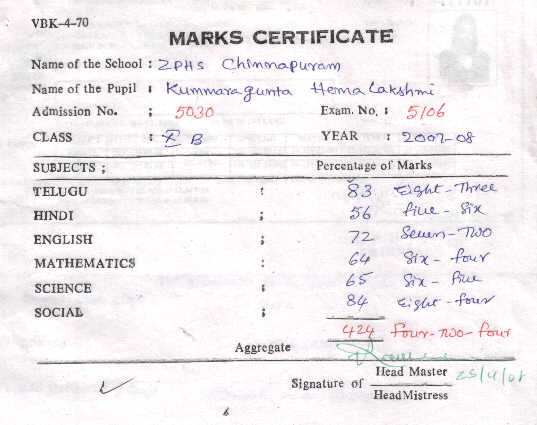 VBK-4-70
MARKS CERTIFICATE
Name of the School : ZPHS Chinnapuram
Name of the Pupil : Kummaragunta Hema Lakshmi
Admission No. ; 5030 Exam. No. : 5106
CLASS : X B YEAR : 2007-08
SUBJECTS ; Percentage of Marks
TELUGU : 83 Eight-Three
HINDI ; 56 five - Six
ENGLISH ; 72 Seven-Two
MATHEMATICS : 64 Six - four
SCIENCE ; 65 Six - five
SOCIAL ; 84 Eight-four
424 four-two-four
Aggregate
Signature of Head Master
HeadMistress